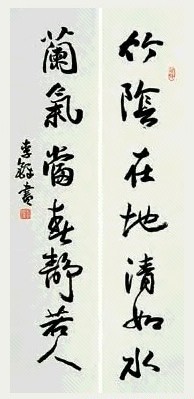 竹陰在地清如水
蘭氣當春靜若人
李&#8203;書